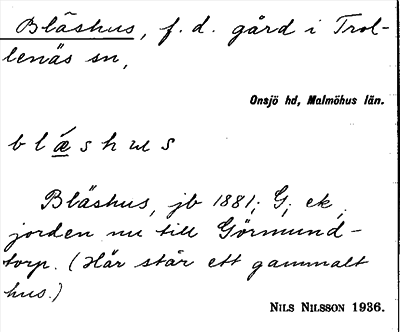 Bläshus, f. d. gård i Trol-
lenäs sn,
Onsjö hd, Malmöhus län.
b l ǽ s h u s
Bläshus, jb 1881; G; ek,
jorden nu till Görmund-
torp. (Här står ett gammalt
hus.)
NILS NILSSON 1936.